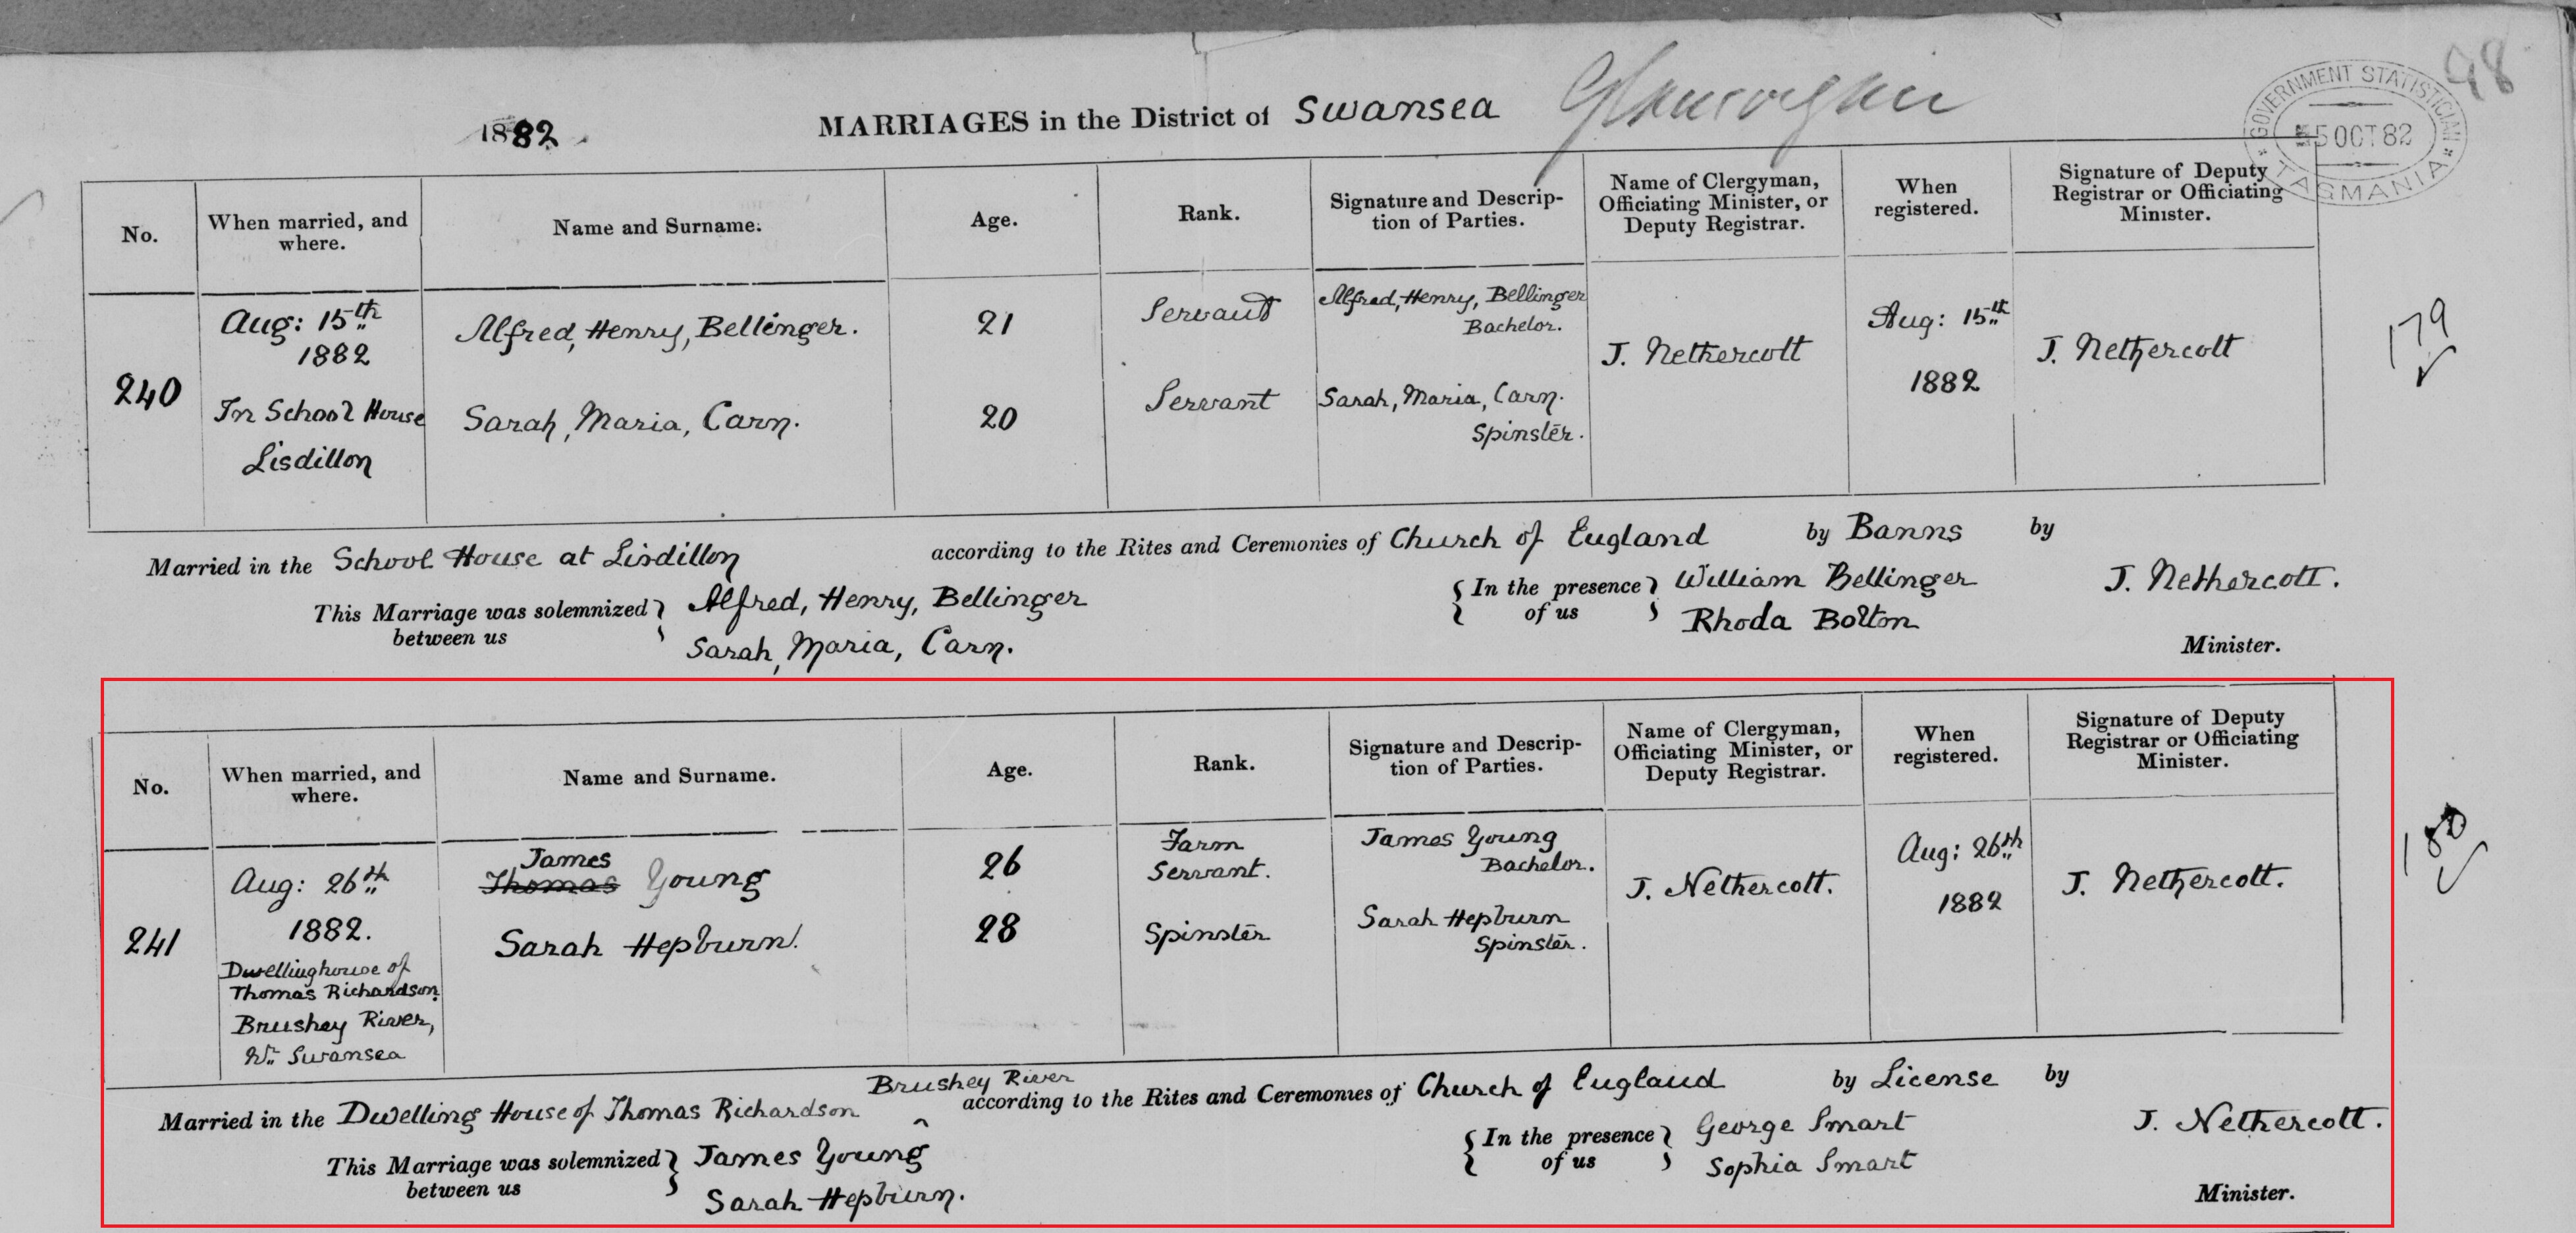 98
GOVERNMENT STATISTICIAN
5 OCT 82
TASMANIA
1882
MARRIAGES in the District of Swansea Glamorgan
No. When married, and where. Name and Surname. Age. Rank. Signature and Description of Parties. Name of Clergyman, Officiating Minister, or Deputy Registrar. When registered. Signature of Deputy Registrar or Officiating Minister.
240
Aug: 15th
1882
In School House
Lisdillon
Alfred, Henry, Bellinger.
Sarah, Maria, Carn.
21
20
Servant
Servant
Alfred, Henry, Bellinger
Bachelor.
Sarah, Maria, Carn.
Spinster.
J. Nethercott
Aug: 15th
1882
J. Nethercott
179
Married in the School House at Lisdillon according to the Rites and Ceremonies of Church of England by Banns by
This Marriage was solemnized between us
Alfred, Henry, Bellinger
Sarah, Maria, Carn.
In the presence of us
William Bellinger
Rhoda Bolton
J. Nethercott.
Minister.
No. When married, and where. Name and Surname. Age. Rank. Signature and Description of Parties. Name of Clergyman, Officiating Minister, or Deputy Registrar. When registered. Signature of Deputy Registrar or Officiating Minister.
241
Aug: 26th
1882.
Dwellinghouse of
Thomas Richardson.
Brushey River,
Nr. Swansea
James
Thomas Young
Sarah Hepburn.
26
28
Farm
Servant.
Spinster
James Young
Bachelor.
Sarah Hepburn
Spinster.
J. Nethercott.
Aug: 26th
1882
J. Nethercott.
180
Brushey River
Married in the Dwelling House of Thomas Richardson according to the Rites and Ceremonies of Church of England by License by
This Marriage was solemnized between us
James Young
Sarah Hepburn.
In the presence of us
George Smart
Sophia Smart
J. Nethercott.
Minister.